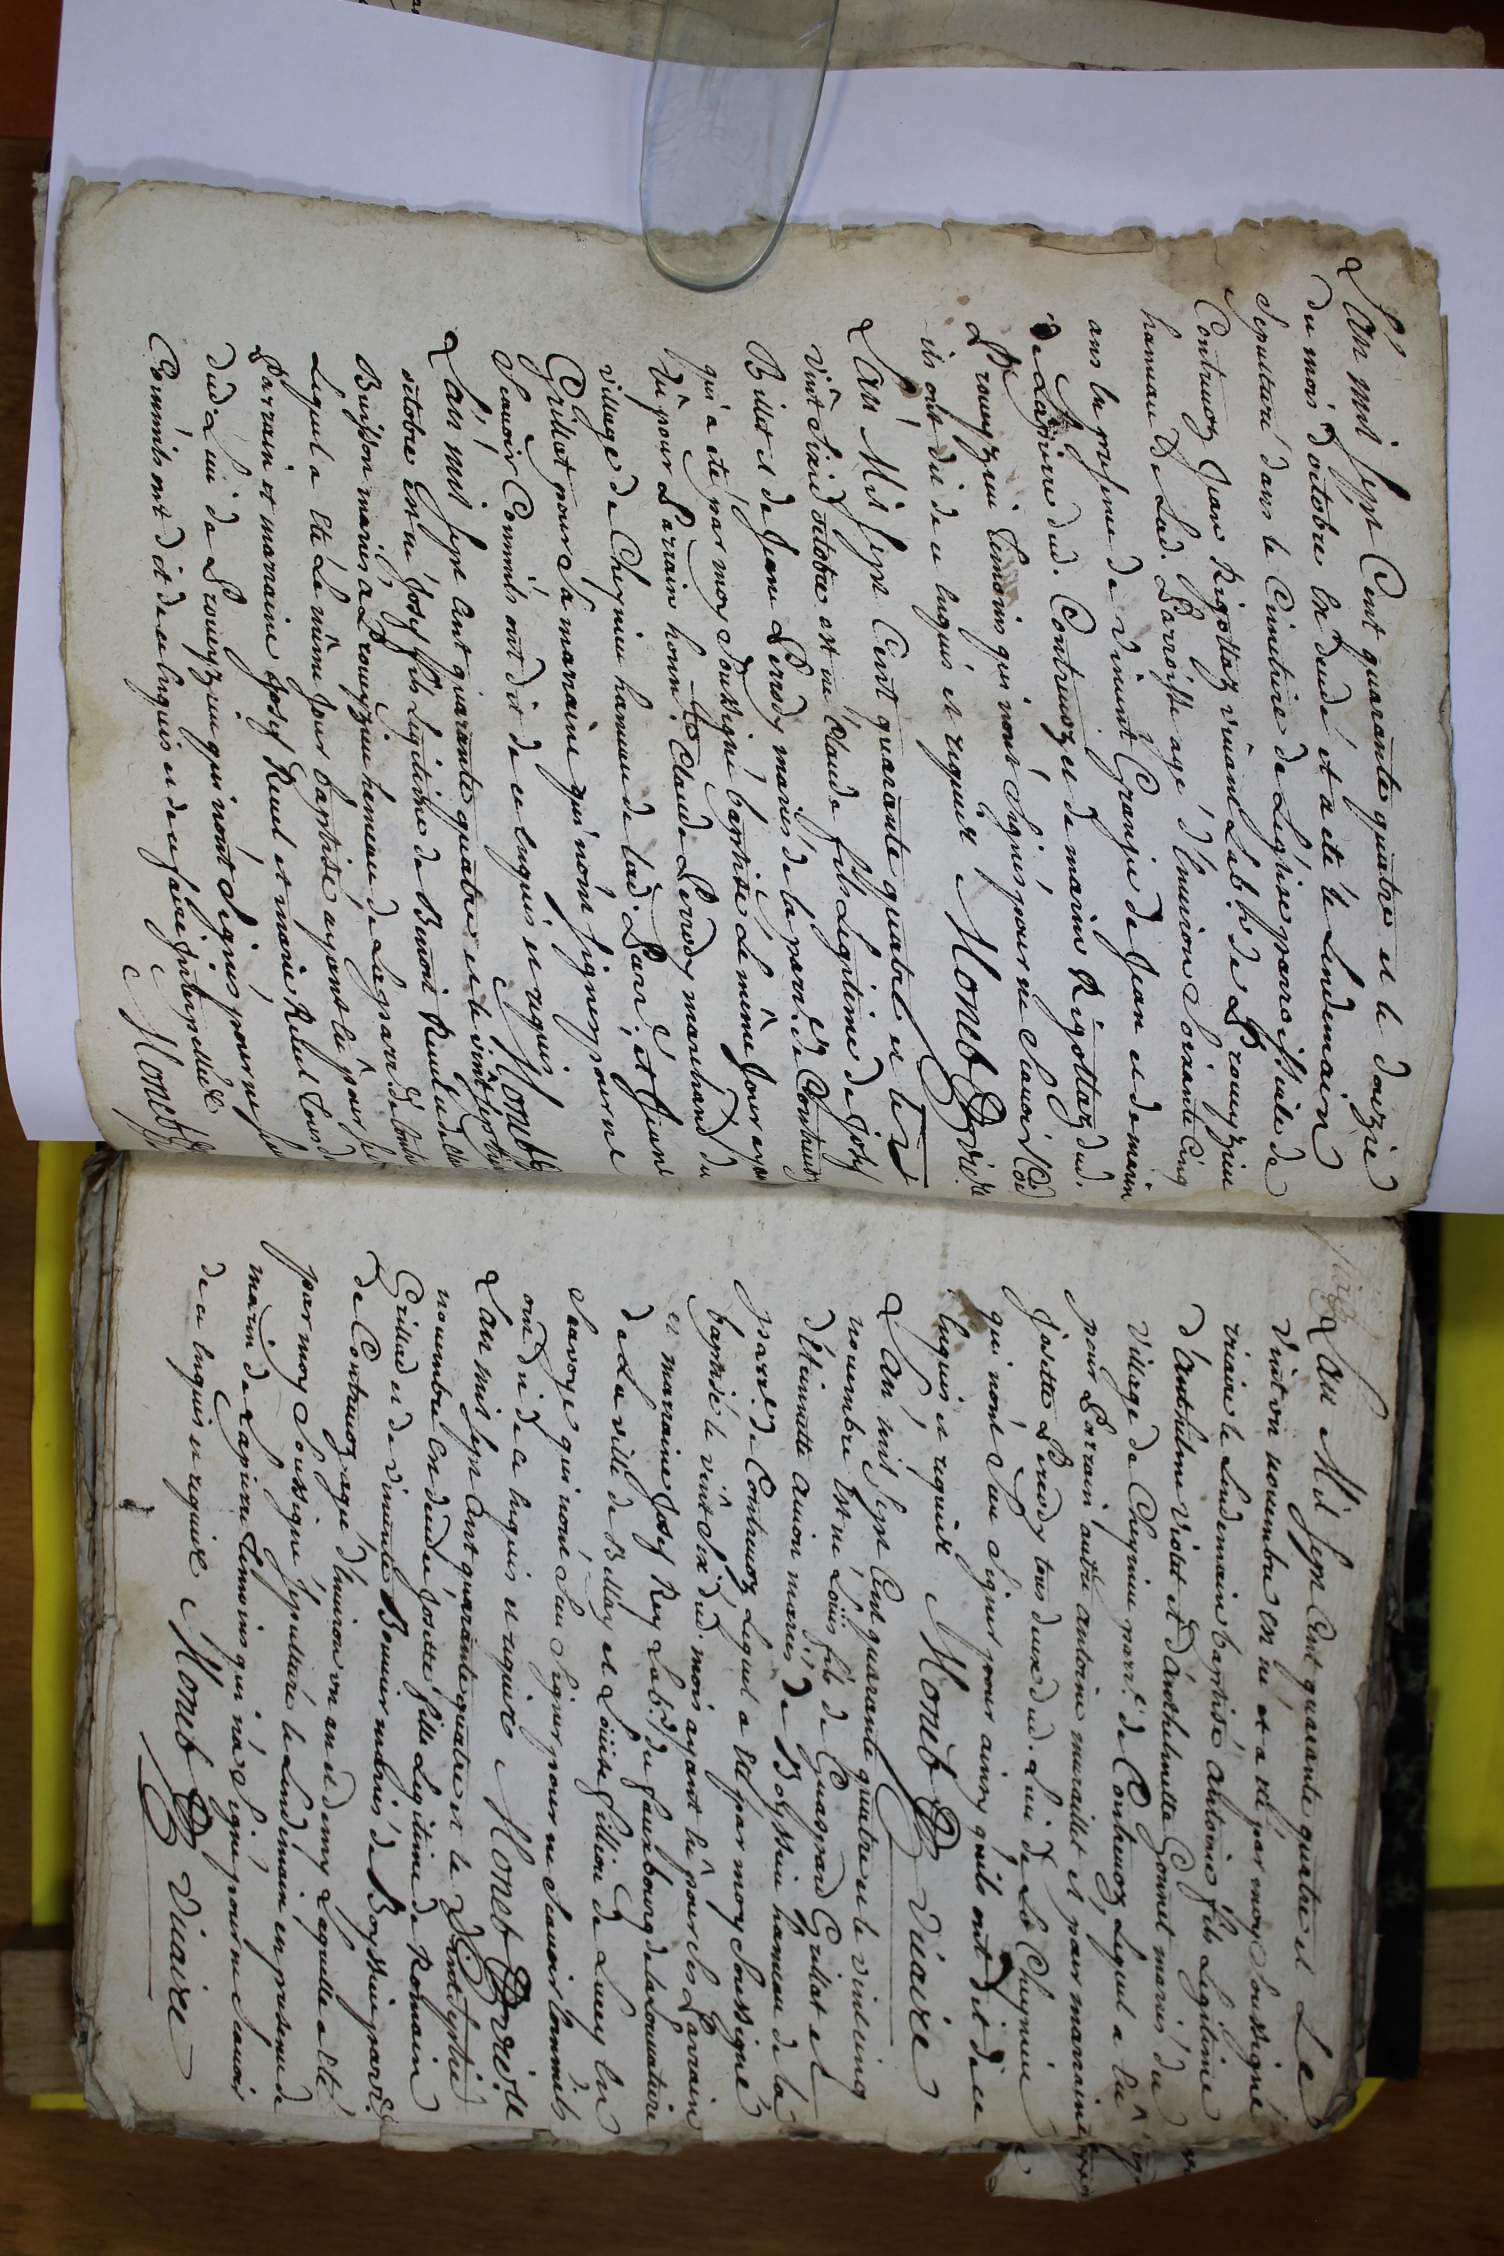 L'an mil sept Cent quarante quatre et le douzie
du mois d'octobre en dendé et a eté le Lendemain
sepulturé dans le Cimetière de Leglise paroissiale de
Contrevoz Jean Rigottaz vivant Lab.r de Proueyzieu
hameau de Lad. Parroisse agé d'Enuiron soixante Cinq
ans en presence de vincent Granje de Jean et de marin
de Lapierre dud. Contrevoz et de marin Rigottaz dud.
Proueyzieu temoins qui nont signés pour ne scauoir Coe
ils ont dit de ce enquis et requis Monet vic.re
L'an Mil sept Cent quarante quatre et le
vint sixie octobre est né Claude fils Legitime de Josef
Billiet et de Jeane Perrody mariés de la parr. de Contrevoz
qui a eté par moy soussigné baptisé Le même Jour ayant
eû pour Parrain honn. Claude Perrody marchand du
village de Cheynieu hameau de lad. Parr. et Jeane
Grillat pour sa marraine qui n'ont signés pour ne
scauoir Comm'ils ont dit de ce enquis et requis
Monet
L'an mil sept Cent quarante quatre et le vint septie
octobre est né Josef fils Legitime de Benoit Reuel et de
Buisson mariés a Proueyzieu hameau de La parr. de Contre
Lequel a eté Le même Jour baptisé ayant eû pour
Parrain et marraine Josef Reuel et marie Reuel tous d
dud. Lieu de Proueyzieu qui n'ont signés pour ne sca
Comm'ils ont dit de ce enquis et de ce faire Interpellés
Monet
L'an Mil sept Cent quarante quatre et Le
vint vn nouembre est né et a eté par moy soussigné
vicaire le Lendemain baptisé Antoine fils Legitime
d'Anthelme Violet et d'Anthelmette Gonnet mariés du
village de Cheynieu parr. de Contrevoz Lequel a eu
pour Parrain autre antoine muraillet et pour marraine
Josette Perrody tous deux dud. Lieu de Cheynieu
qui nont sceu signer pour ainsy quils ont dit de ce
enquis et requis Monet vicaire
L'an mil sept Cent quarante quatre et le vint cinq
nouembre est né Loüis fils de Guaspard Grillat et
d'Etiennette Auion mariés de Boyssieu hameau de la
parr. de Contrevoz Lequel a eté par moy soussigné
baptisé le vint six dud. mois ayant eû pour ses Parrain
et marraine Josef Rey Lab.r du fauxbourg de la Louvatiere
de La ville de Bellay et Loüise fillion de Lucey en
Savoye qui nont sceu signer pour ne scauoir Comm'ils
ont dit de ce enquis et requis Monet vic.re
L'an mil sept Cent quarante quatre et le vint septie
nouembre est dendée Josette fille Legitime de Romain
Grillad et de vincente Bonnier mariés de Boyssieu parr.
de Contrevoz agée d'enuiron vn an et demy Laquelle a eté
par moy soussigné sepulturée le Lendemain en presence de
marin de Lapierre temoins qui n'a signé pour ne scauoir
de ce enquis et requis Monet vicaire